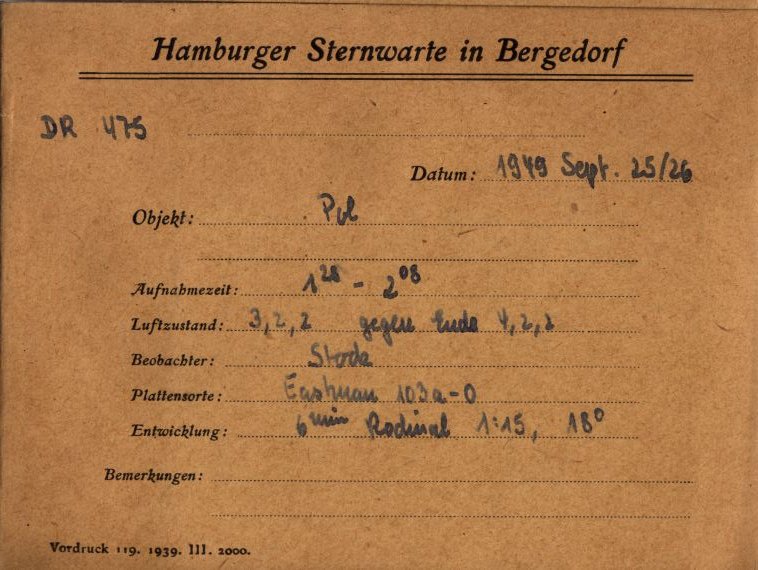 Hamburger Sternwarte in Bergedorf
DR 475
Datum: 1949 Sept. 25/26
Objekt: Pol
Aufnahmezeit: 1²⁸ - 2⁰⁸
Luftzustand: 3, 2, 2 gegen Ende 4, 2, 2
Beobachter: Stock
Plattensorte: Eastman 103a-O
Entwicklung: 6 min Rodinal 1:15, 18°
Bemerkungen:
Vordruck 119. 1939. III. 2000.